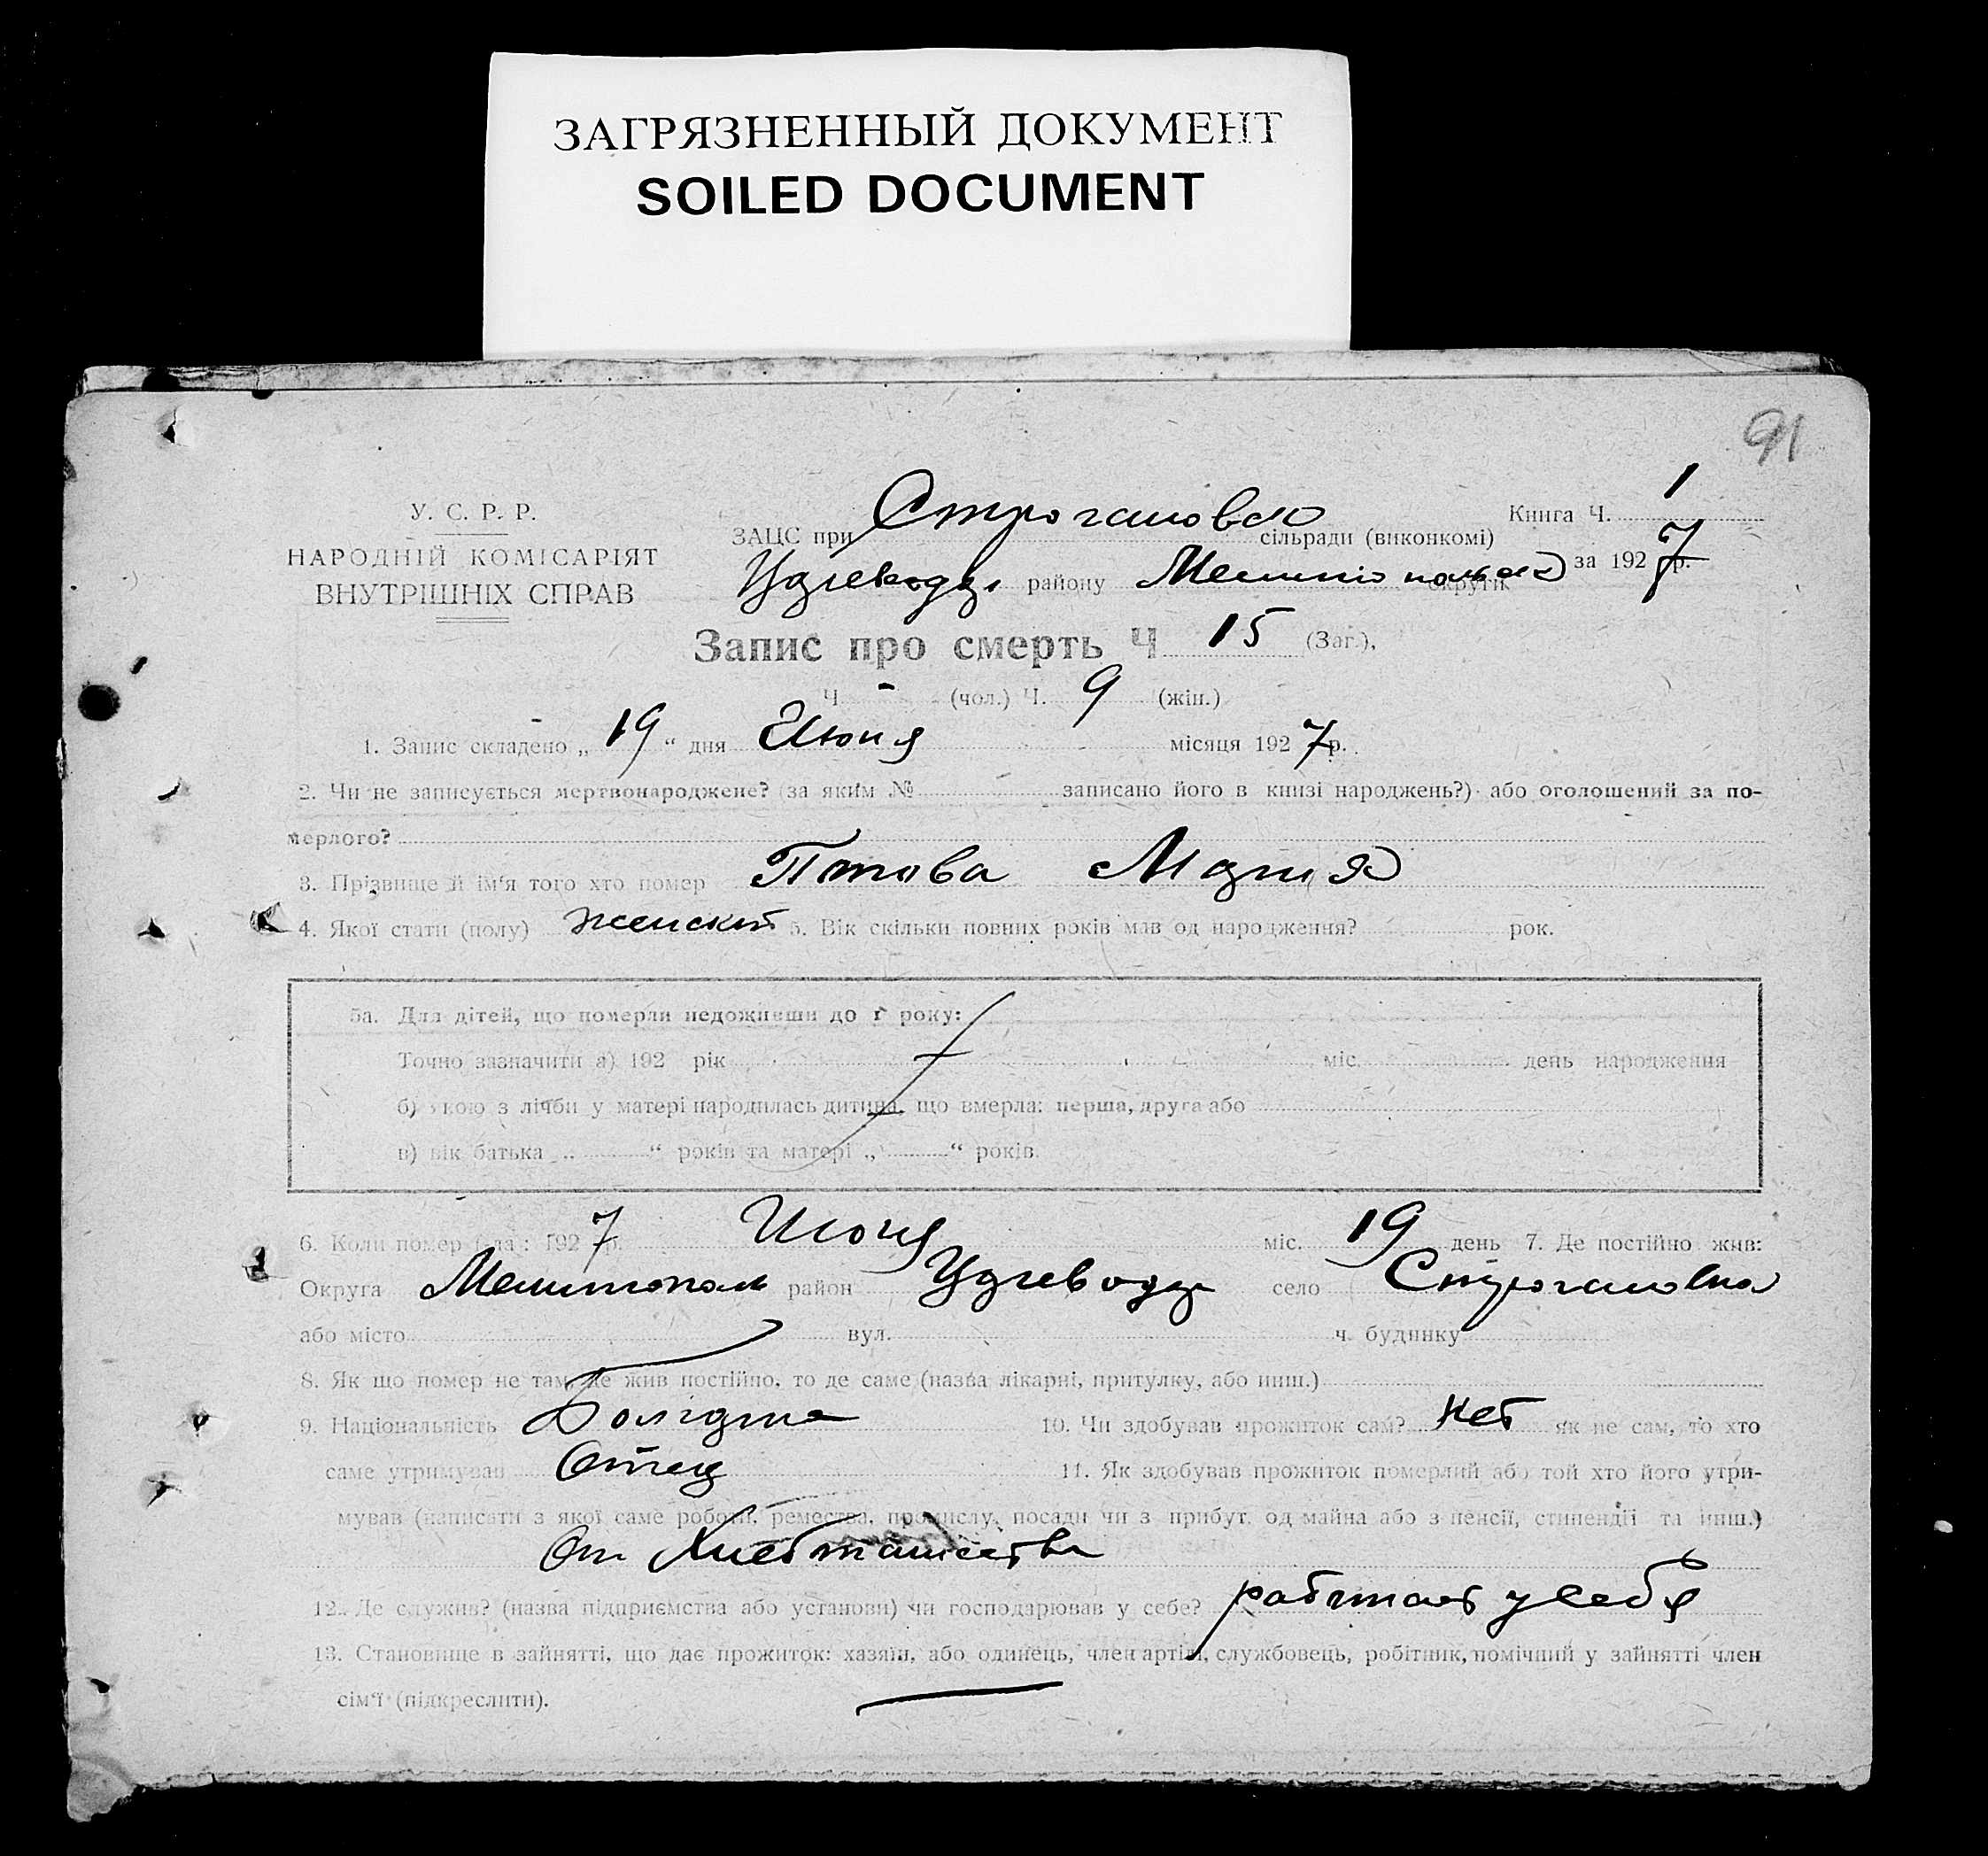 ЗАГРЯЗНЕННЫЙ ДОКУМЕНТ
SOILED DOCUMENT
91
У. С. Р. Р.
НАРОДНІЙ КОМІСАРІЯТ
ВНУТРІШНІХ СПРАВ
ЗАЦС при Строгановско сільради (виконкомі) Книга Ч. 1
району округи за 1927 р.
Запис про смерть Ч 15 (Заг.),
Ч - (чол.) Ч. 9 (жін.)
1. Запис складено „ 19 “ дня Июня місяця 1927 р.
2. Чи не записується мертвонароджене? (за яким № записано його в книзі народжень?) або оголошений за по-
мерлого?
3. Прізвище й ім'я того хто помер Мария
4. Якої стати (полу) женский 5. Вік скільки повних років мав од народження? рок.
5а. Для дітей, що померли недоживши до 1 року:
Точно зазначити а) 192 рік міс. день народження
б) якою з лічби у матері народилась дитина, що вмерла: перша, друга або
в) вік батька „ “ років та матері „ “ років.
6. Коли помер (-ла): 1927 р. Июня міс. 19 день 7. Де постійно жив:
Округа Мелитополь район село Строгановка
або місто вул. ч. будинку
8. Як що помер не там, де жив постійно, то де саме (назва лікарні, притулку, або инш.)
9. Національність 10. Чи здобував прожиток сам? нет як не сам, то хто
саме утримував Отец 11. Як здобував прожиток померлий або той хто його утри-
мував (написати з якої саме роботи, ремества, промислу, посади чи з прибут. од майна або з пенсії, стипендії та инш.)
От Хлебопашества
12. Де служив? (назва підприємства або установи) чи господарював у себе? работает у себя
13. Становище в зайнятті, що дає прожиток: хазяїн, або одинець, член артілі, службовець, робітник, помічний у зайнятті член
сім'ї (підкреслити).